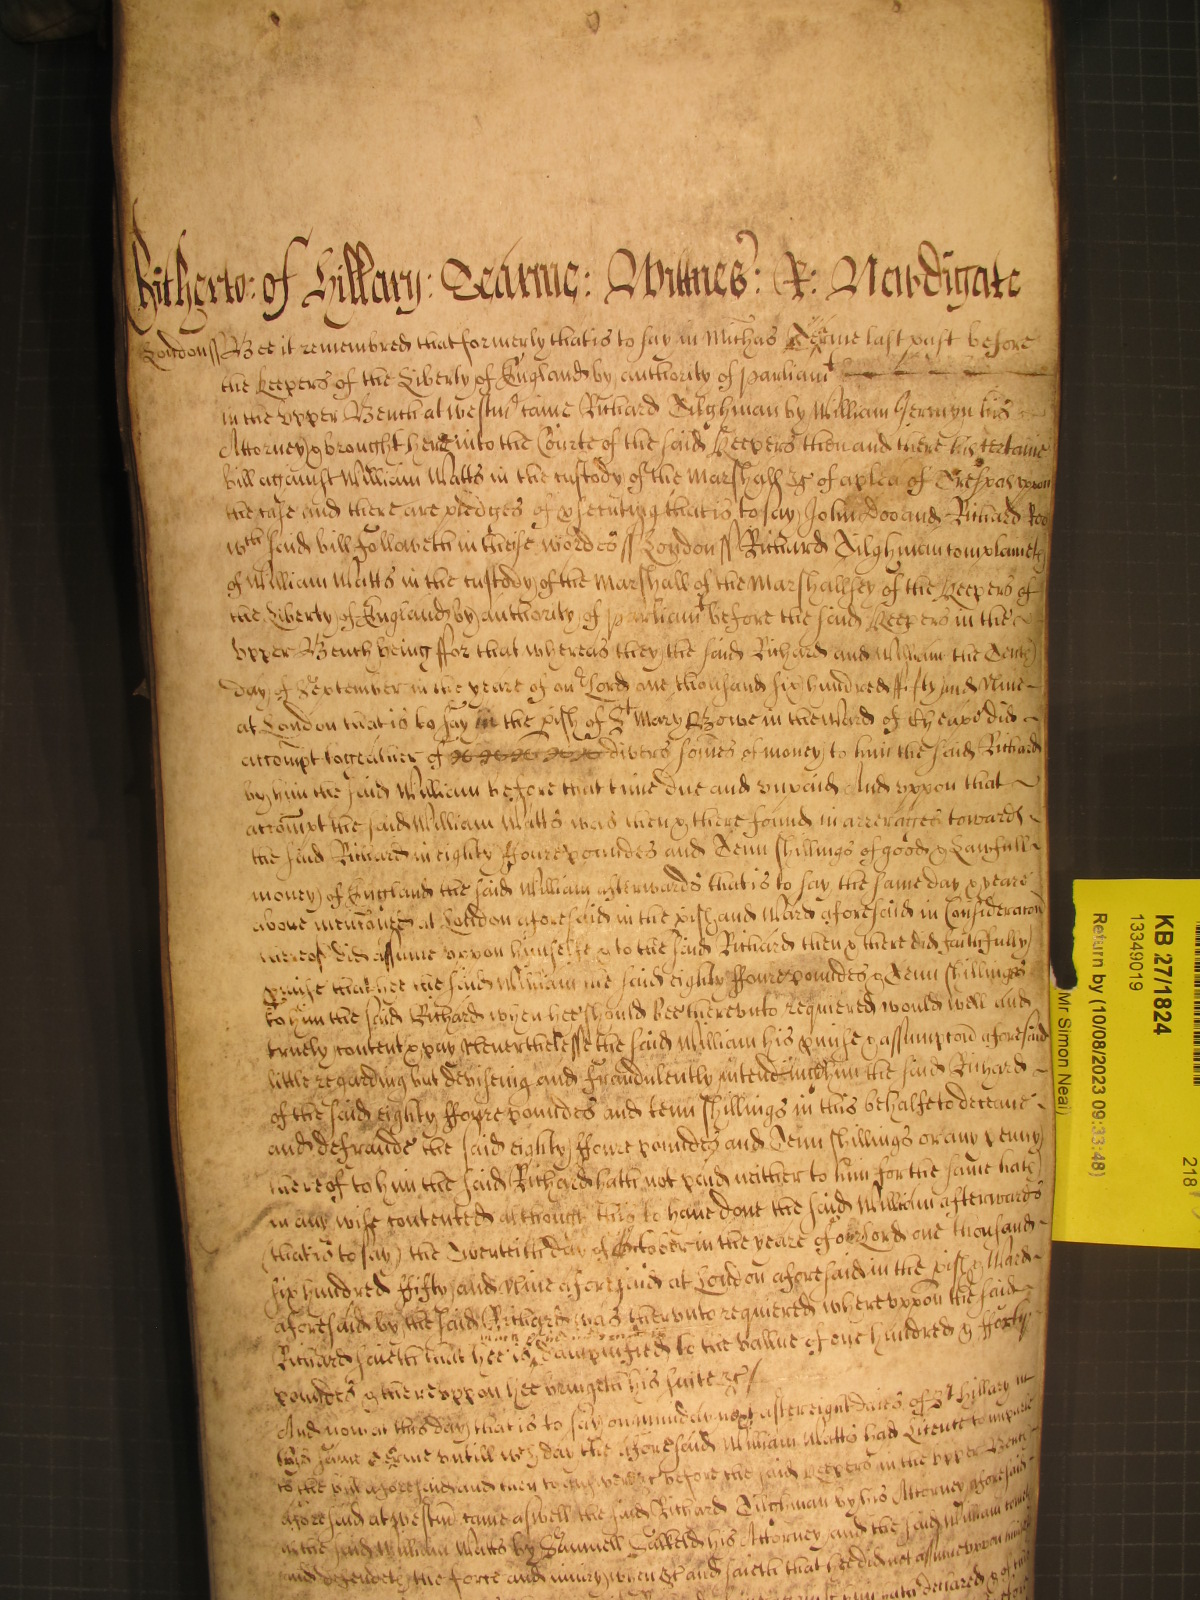 hitherto: of Hillary: Tearme: Wittnes: R: Newdigate
London ss Bee it remembred that formerly that is to say in Michas Tearme last past before
the keepers of the Liberty of England by authority of parliamt
in the upper Bench at westmr came Richard Tilghman by William Jermyn his
Attorney & brought here into the Courte of the said Keepers then and there his certaine
bill against William Watts in the custody of the Marshall &c of a plea of Trespas uppon
the case and there are pledges of psecuting that is to say John Doo and Richard Roo
wch said bill followeth in these wordes ss London ss Richard Tilghman complaineth
of William Watts in the custody of the Marshall of the Marshallsey of the Keepers of
the Liberty of England by authority of parliamt before the said Keepers in the
upper Bench being ffor that whereas they the said Richard and William the Tenth
day of September in the yeare of our Lord one thousand six hundred ffifty and Nine
at London that is to say in the pish of St Mary Bowe in the Ward of Cheape did
accompt togeather of divers somes of money to him the said Richard
by him the said William before that time due and unpaid And uppon that
accompt the said William Watts was then & there found in arrerages towards
the said Richard in eighty ffoure poundes and Tenn shillings of good & Lawfull
money of England the said William afterwards that is to say the same day & yeare
above mencioned at London aforesaid in the pish and Ward aforesaid in Consideracon
thereof did assume uppon himselfe & to the said Richard then & there did faithfully
pmise that hee the said William the said eighty ffoure poundes & Tenn shillings
to him the said Richard when hee should bee thereunto requiered would well and
truely content & pay Neverthelesse the said William his pmise & assumpcon aforesaid
little regarding but deviseing and fraudulently intending him the said Richard
of the said eighty ffoure poundes and tenn shillings in this behalfe to deceave
and defraude the said eighty ffoure poundes and Tenn shillings or any penny
thereof to him the said Richard hath not paid neither to him for the same hath
in any wise contented although this to have done the said William afterwards
(that is to say) the Twentith day of October in the yeare of our Lord one thousand
six hundred ffifty and Nine aforesaid at London aforesaid in the pish & Ward
aforesaid by the said Richard was thereunto requiered whereuppon the said
Richard saieth that hee is dampnified to the vallue of one hundred & fforty
poundes & thereuppon hee bringeth his suite &c
And now at this day that is to say on munday next after eight daies of St Hillary in
this same Tearme untill wch day the aforesaid William Watts had Licence to imparle
to the bill aforesaid and then to answere &c before the said Keepers in the upper Bench
aforesaid at westmr came aswell the said Richard Tilghman by his Attorney aforesaid
as the said William Watts by Samuell his Attorney and the said William
and defendeth the force and iniury when &c and saieth that hee did not assume uppon himselfe
KB 27/1824
13349019
Return by (10/08/2023 09:33:48)
Mr Simon Neal
218